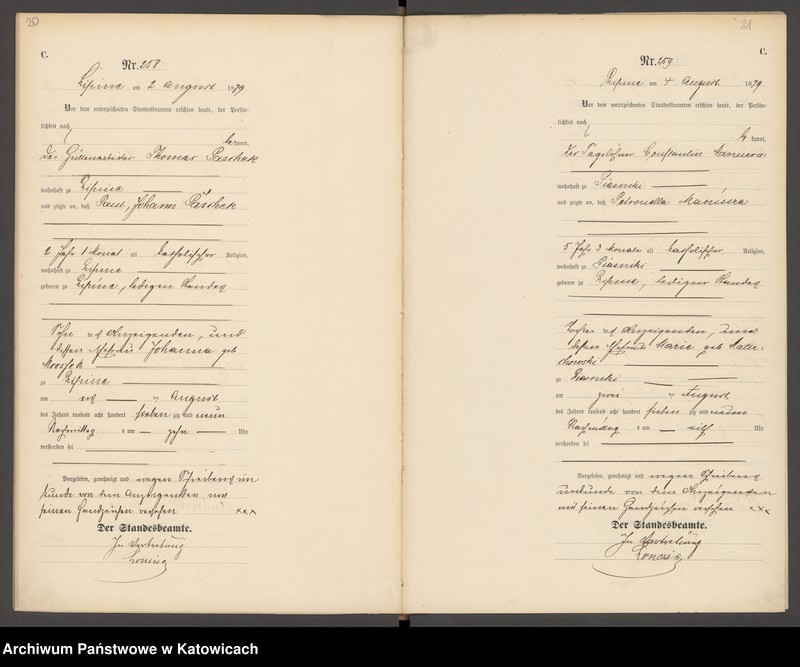 20
C.
Nr. 258
Lipine am 2 August 1879
Vor dem unterzeichneten Standesbeamten erschien heute, der Persön-
lichkeit nach
be kannt,
der Hüttenarbeiter Thomas Paschek
wohnhaft zu Lipine
und zeigte an, daß Paul, Johann Paschek
2 Jahr 1 Monat alt katholischer Religion,
wohnhaft zu Lipine
geboren zu Lipine, ledigen Standes
Sohn des Anzeigenden, und
dessen Ehefrau Johanna geb
zu Lipine
am August
des Jahres tausend acht hundert sieben zig und neun
Nachmittag um zehn Uhr
verstorben sei
Vorgelesen, genehmigt und wegen Schreibens un
kunde von dem Anzeigenden mit
seinen Handzeichen versehen xxx
Der Standesbeamte.
In Vertretung
21
C.
Nr. 259
Lipine am 4 August 1879
Vor dem unterzeichneten Standesbeamten erschien heute, der Persön-
lichkeit nach
be kannt,
der Tagelöhner Constantin Maniura
wohnhaft zu Piasniki
und zeigte an, daß Petronella Maniura
5 Jahr 3 Monate alt katholischer Religion,
wohnhaft zu Piasniki
geboren zu Lipine, ledigen Standes
Tochter des Anzeigenden, und
dessen Ehefrau Marie geb
zu Piasniki
am zwei ten August
des Jahres tausend acht hundert sieben zig und neun
Nachmittag um elf Uhr
verstorben sei
Vorgelesen, genehmigt und wegen Schreibens
unkunde von dem Anzeigenden
mit seinen Handzeichen versehen xxx
Der Standesbeamte.
In Vertretung
Archiwum Państwowe w Katowicach